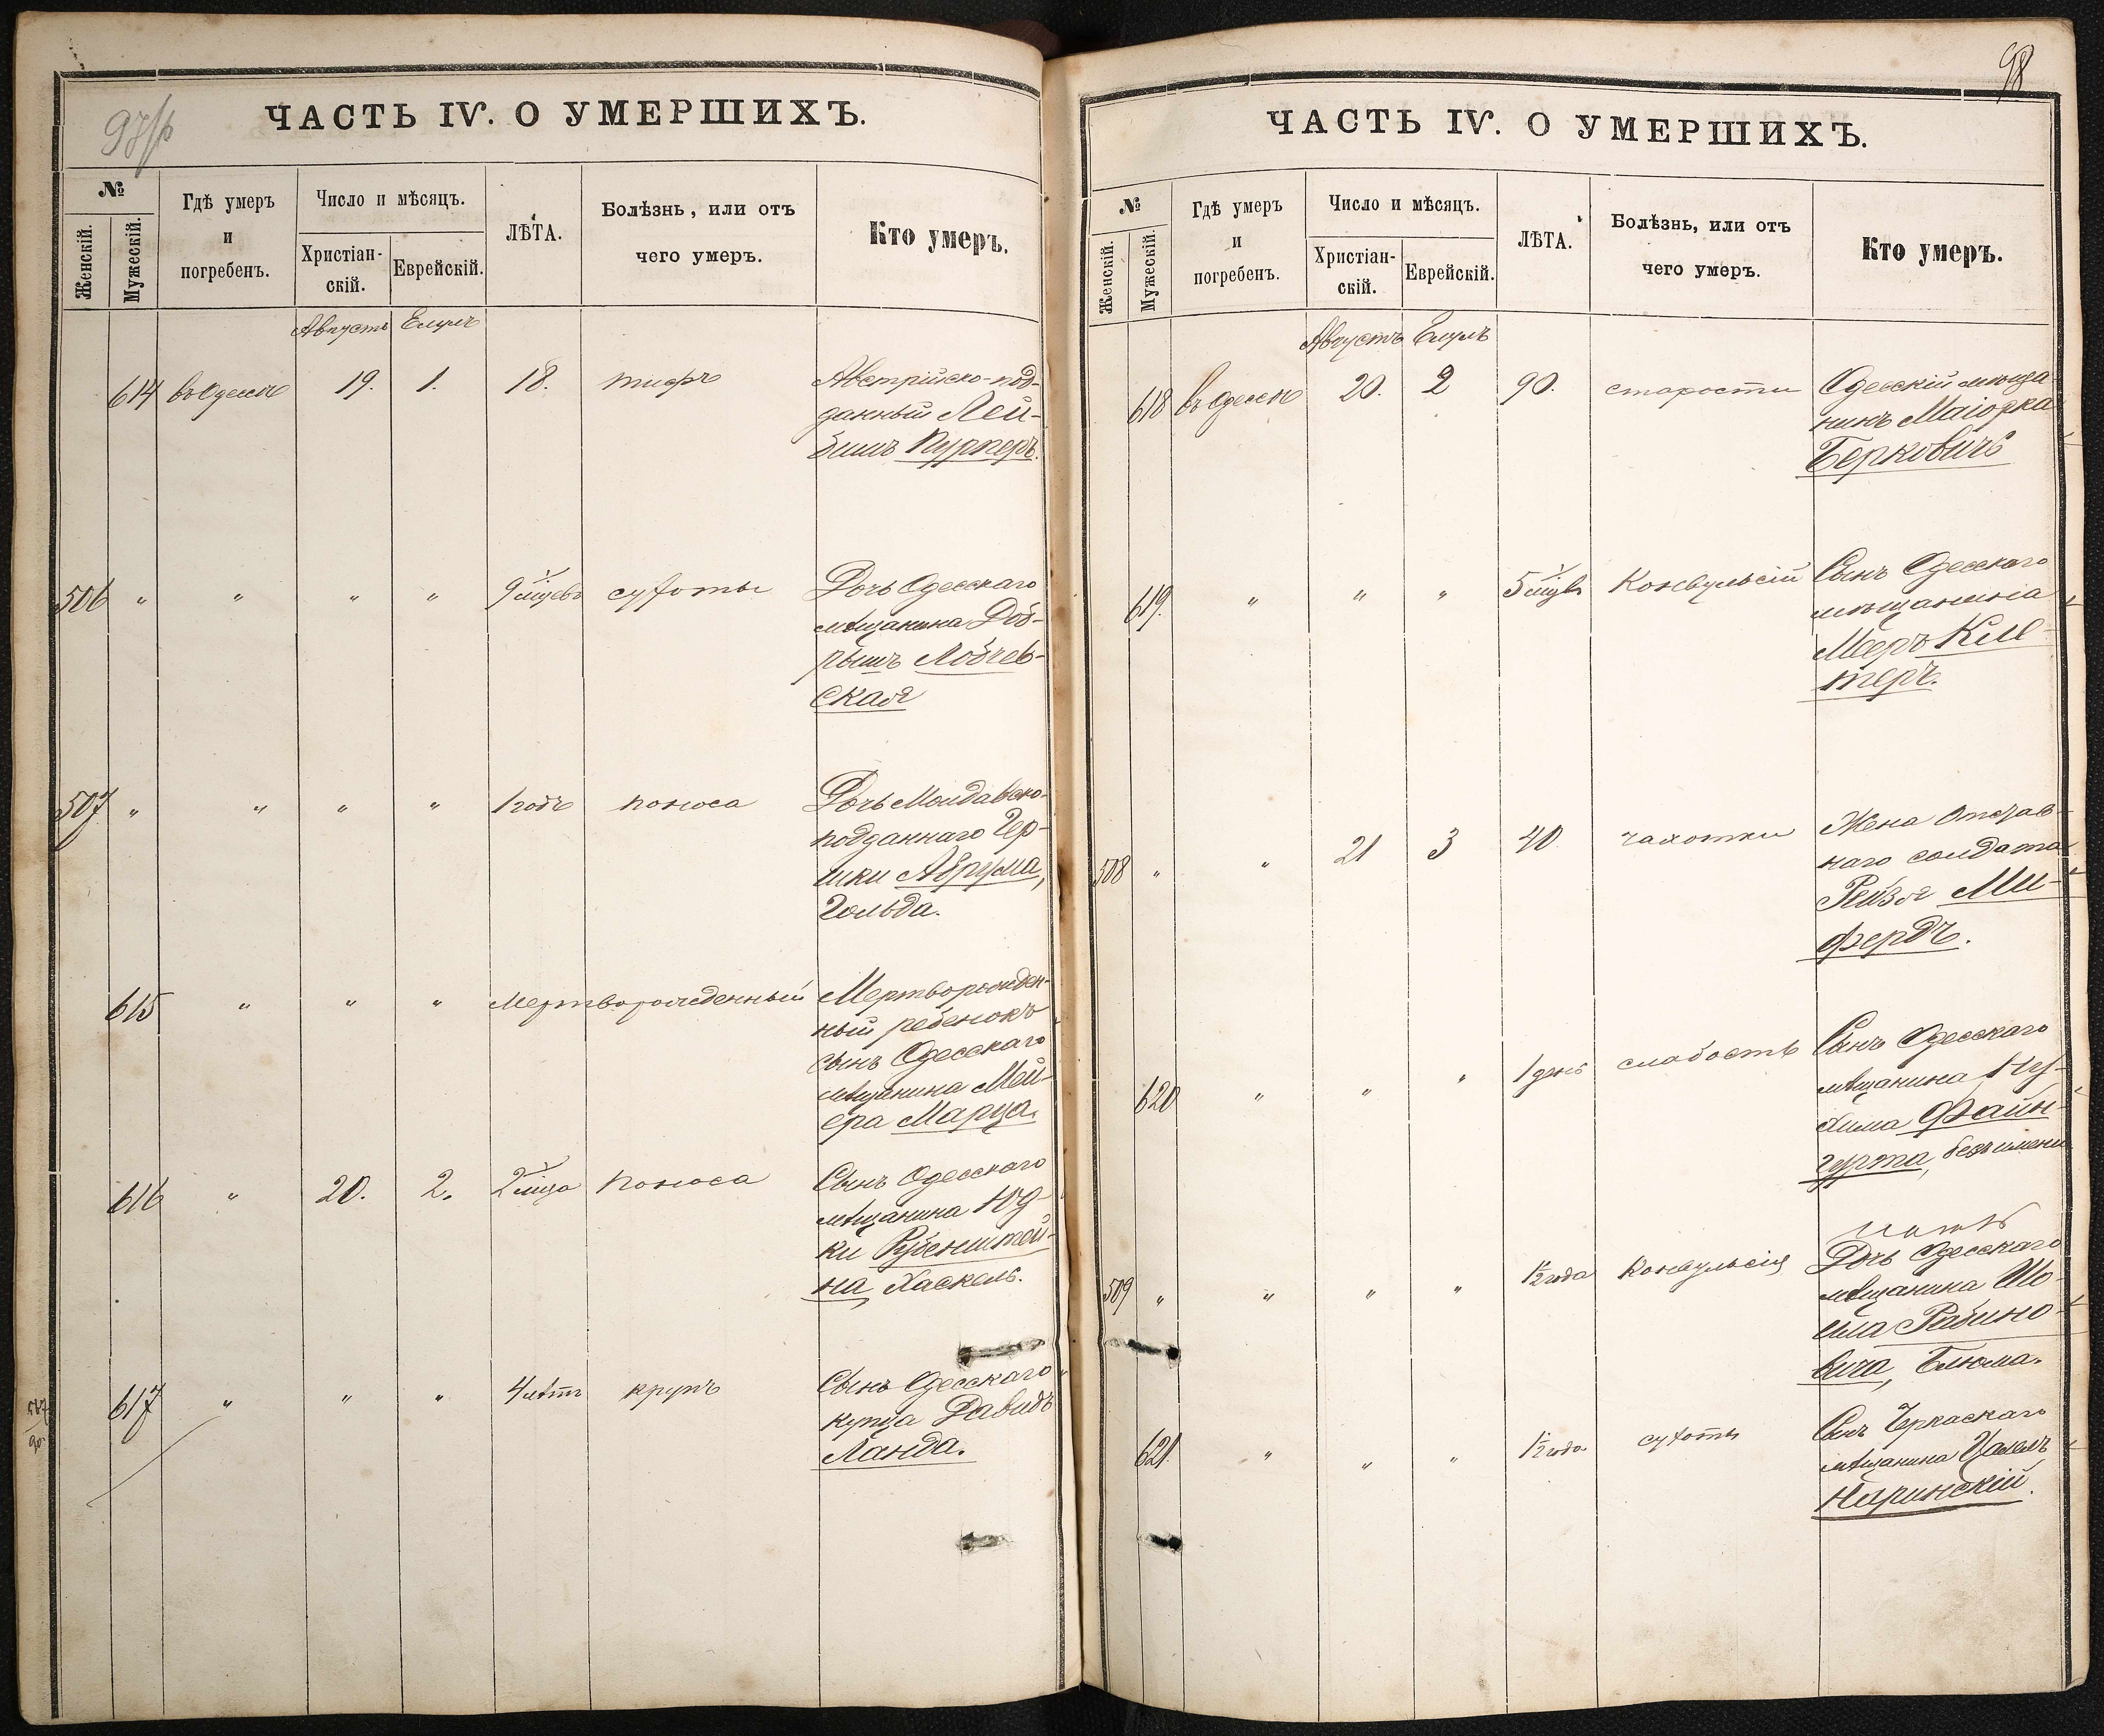 97/р
ЧАСТЬ IV. О УМЕРШИХЪ.
№
Женскій.
Мужескій.
Гдѣ умеръ
и
погребенъ.
Число и мѣсяцъ.
Христіан-
скій.
Еврейскій.
ЛѢТА.
Болѣзнь, или отъ
чего умеръ.
Кто умеръ.
Августъ Елулъ
614 въ Одессѣ 19. 1. 18. тифъ Австрійско-под-
данный Лей-
бишъ Пурперъ.
506 " " " " 9 мцевъ сухоты Дочь Одесскаго
мѣщанина Доб-
рышъ Лобчев-
ская
507 " " " " 1 годъ поноса Дочь Молдавско-
подданнаго Гер-
шки Абрума,
Гольда.
615 " " " Мертворожденный Мертворожден-
ный ребенокъ
сынъ Одесскаго
мѣщанина Мей-
ера Марца.
616 " 20. 2. 2 мца поноса Сынъ Одесскаго
мѣщанина Юд-
ки Рубенштей-
на, Хаскель.
617 " " " 4 лѣтъ крупъ Сынъ Одесскаго
купца Давидъ
Ланда.
98
ЧАСТЬ IV. О УМЕРШИХЪ.
№
Женскій.
Мужескій.
Гдѣ умеръ
и
погребенъ.
Число и мѣсяцъ.
Христіан-
скій.
Еврейскій.
ЛѢТА.
Болѣзнь, или отъ
чего умеръ.
Кто умеръ.
Августъ Елулъ
618 въ Одессѣ 20. 2 90. старости Одесскій мѣща-
нинъ Маіорка
Берковичъ
619. " " " 5 мцвъ Конвульсій Сынъ Одесскаго
мѣщанина
Мееръ Кле-
перъ.
508 " " 21 3 40 чахотки Жена Отстав-
наго солдата
Рейзя Ми-
фердъ.
620 " " " 1 день слабость Сынъ Одесскаго
мѣщанина Ну-
хима Файн-
гурта, безъ имени
509 " " " " 1½ года Конвульсія Дочь Одесскаго
мѣщанина Шо-
ела Рабино-
вича, Блюма.
621. " " " 1½ года сухоты Сынъ Черкаскаго
мѣщанина Цалелъ
Наринскій.